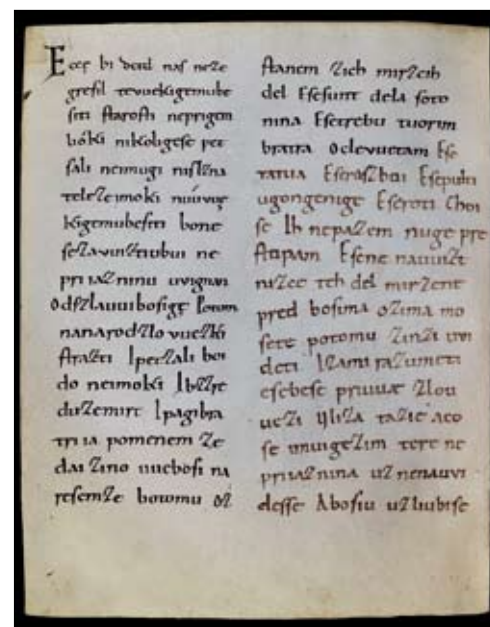 Ecce bi detd naſ neze
greſil tevuekigemube
ſiti ſtaroſti neprigem
lióki nikoligeſe pet
ſali neimugi niſlzna
telezeimoki nuúvue
kigemubeſiti bone
ſezavuiztiubui ne
priiazninu uvignan
Odſzlauuiboſige Potom
nanarodzlovuezki
ſtrazti Ipetzali boi
do neimoki Ibzzre
duzemirt Ipagibra
triia pomenem ze
dai zino uueboſi na
reſemze botomu oz
ſtanem zich mirzcih
del Eſeſunt dela ſoto
nina Eſetrebu tuorim
bratra Oclevuetam Eſe
tatua Eſerazboi Eſepulti
ugongenige Eſeroti Choi
ſe Ih nepazem nuge pre
ſtopam Eſene nauuizt
nizce teh del mirzene
pred boſima ozima mo
ſete potomu zinzi uvi
deti Izami razumeti
eſebeſe priuuae zlou
uezi Uliza tazie aco
ſe imuigezim tere ne
priiaznina uznenauvi
deſſe Aboſiu uzliubiſe